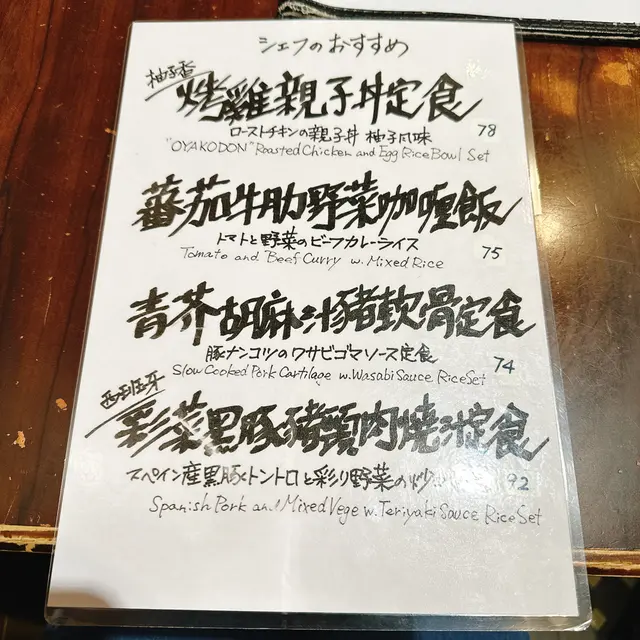 シェフのおすすめ
柚子香
烤雞親子丼定食
ローストチキンの親子丼 柚子風味
78
"OYAKODON" Roasted Chicken and Egg Rice Bowl Set
蕃茄牛肋野菜咖喱飯
トマトと野菜のビーフカレーライス
75
Tomato and Beef Curry w. Mixed Rice
青芥胡麻汁豬軟骨定食
豚ナンコツのワサビゴマソース定食
74
Slow Cooked Pork Cartilage w. Wasabi Sauce Rice Set
西班牙
彩菜黒豚豬頸肉燒汁定食
スペイン産黒豚トントロと彩り野菜の炒
92
Spanish Pork and Mixed Vege w. Teriyaki Sauce Rice Set